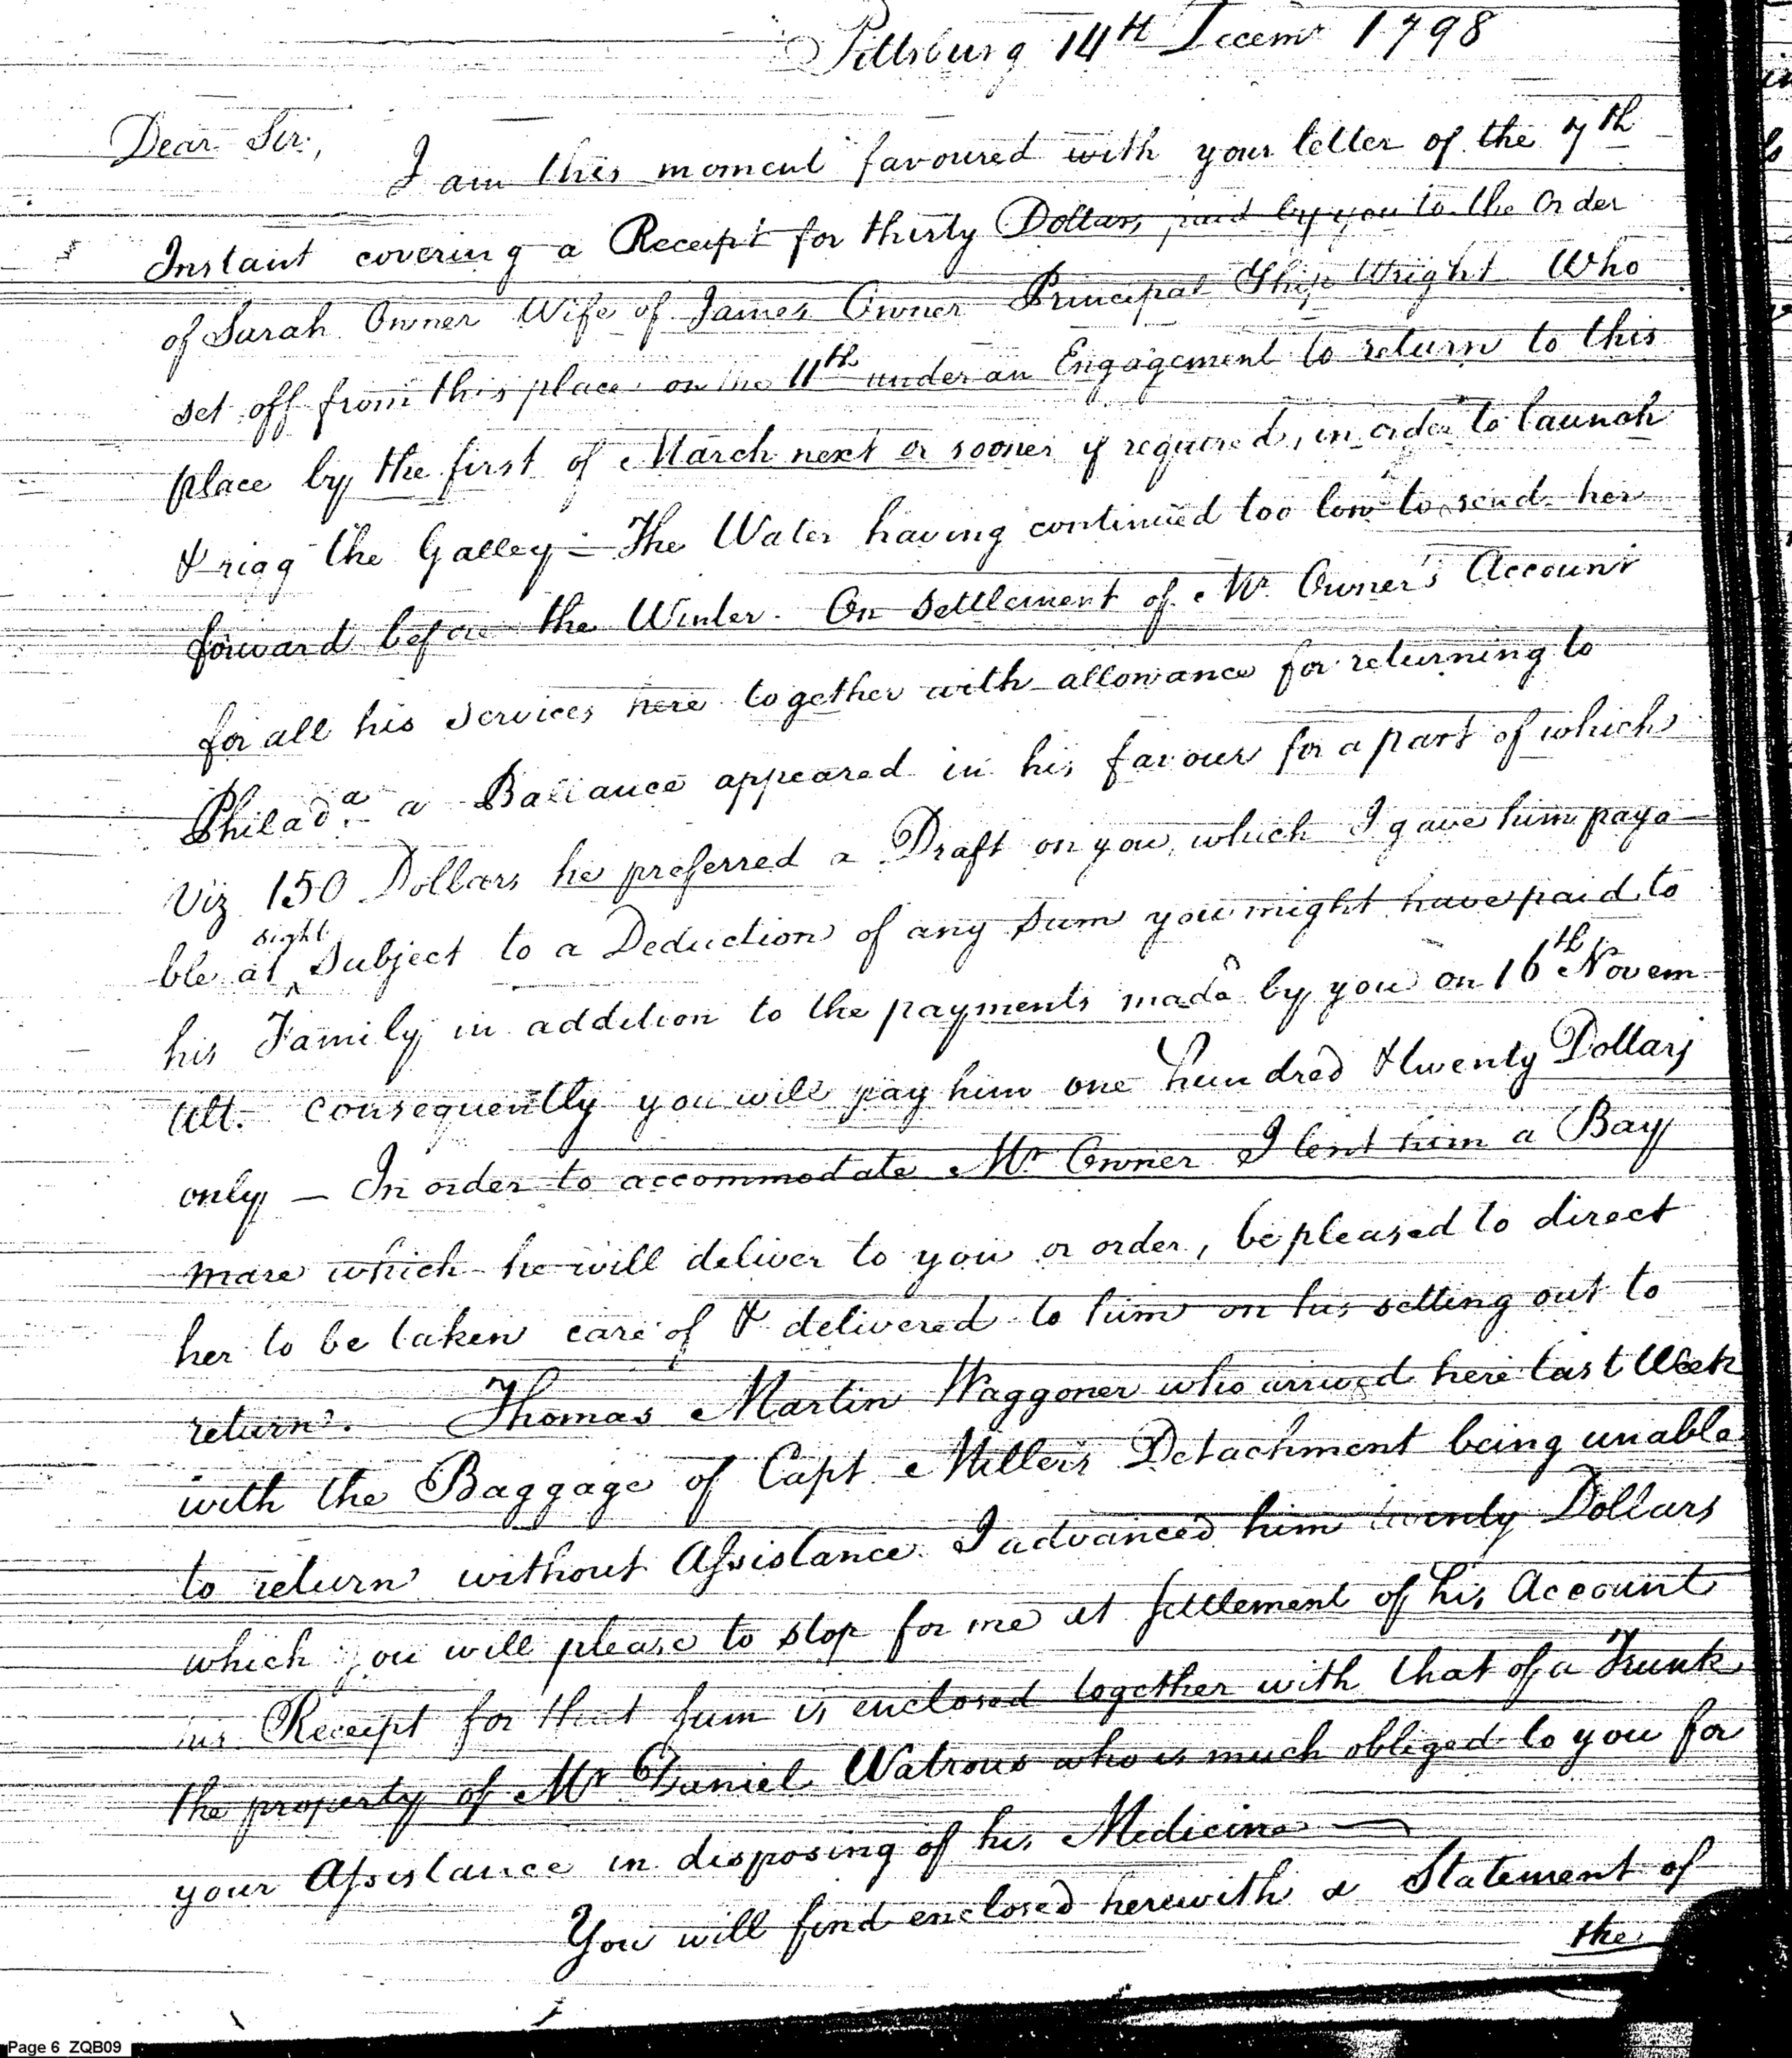 Pittsburg 14th Decemr 1798
Dear Sir,
I am this moment favoured with your letter of the 7th
Instant covering a Receipt for thirty Dollars, paid by you to the Order
of Sarah Owner Wife of James Owner Principal Ship Wright Who
set off from this place on the 11th under an Engagement to return to this
place by the first of March next or sooner if required, in order to launch
& rigg the Galley – The Water having continued too low to send her
forward before the Winter. On Settlement of Mr. Owner's Account
for all his Services here together with allowance for returning to
Philada. a Ballance appeared in his favour for a part of which
Viz 150 Dollars he preferred a Draft on you, which I gave him paya-
sight
ble at ^ Subject to a Deduction of any Sum you might have paid to
his Family in addition to the payments made by you on 16th Novem
Ult. consequently you will pay him one hundred & twenty Dollars
only – In order to accommodate Mr Owner I lent him a Bay
mare which he will deliver to you or order, be pleased to direct
her to be taken care of & delivered to him on his setting out to
return. Thomas Martin Waggoner who arrived here last Week
with the Baggage of Capt Miller's Detachment being unable
to return without Assistance I advanced him twenty Dollars
which you will please to stop for me at settlement of his Account
his Receipt for that sum is enclosed together with that of a Trunk
the property of Mr Daniel Watrous who is much obliged to you for
your Assistance in disposing of his Medicine —
You will find enclosed herewith a Statement of
the
Page 6 ZQB09